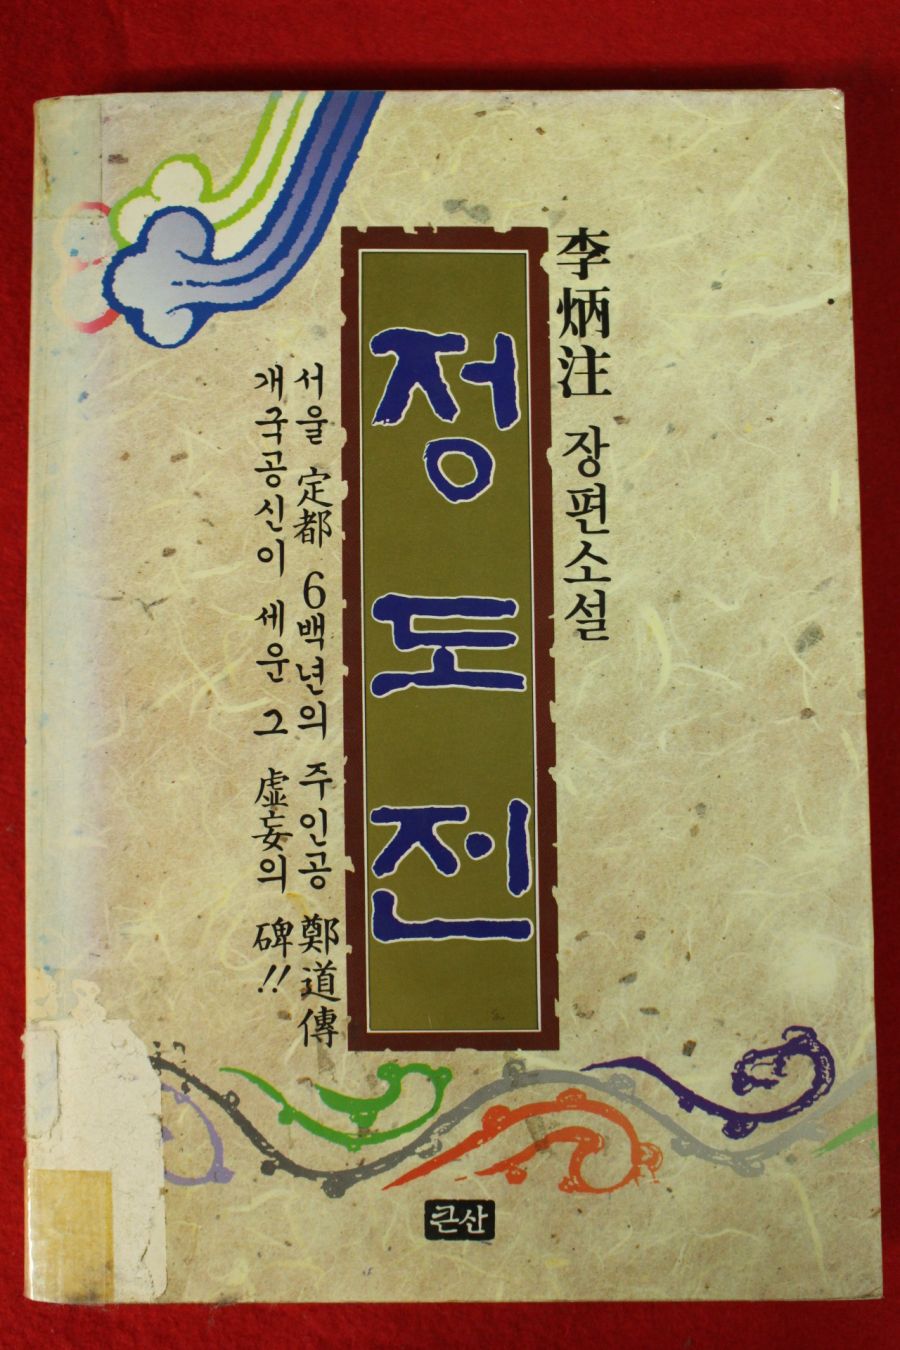 李炳注 장편소설
정도전
서울 定都 6백년의 주인공 鄭道傳
개국공신이 세운 그 虛妄의 碑!!
큰산